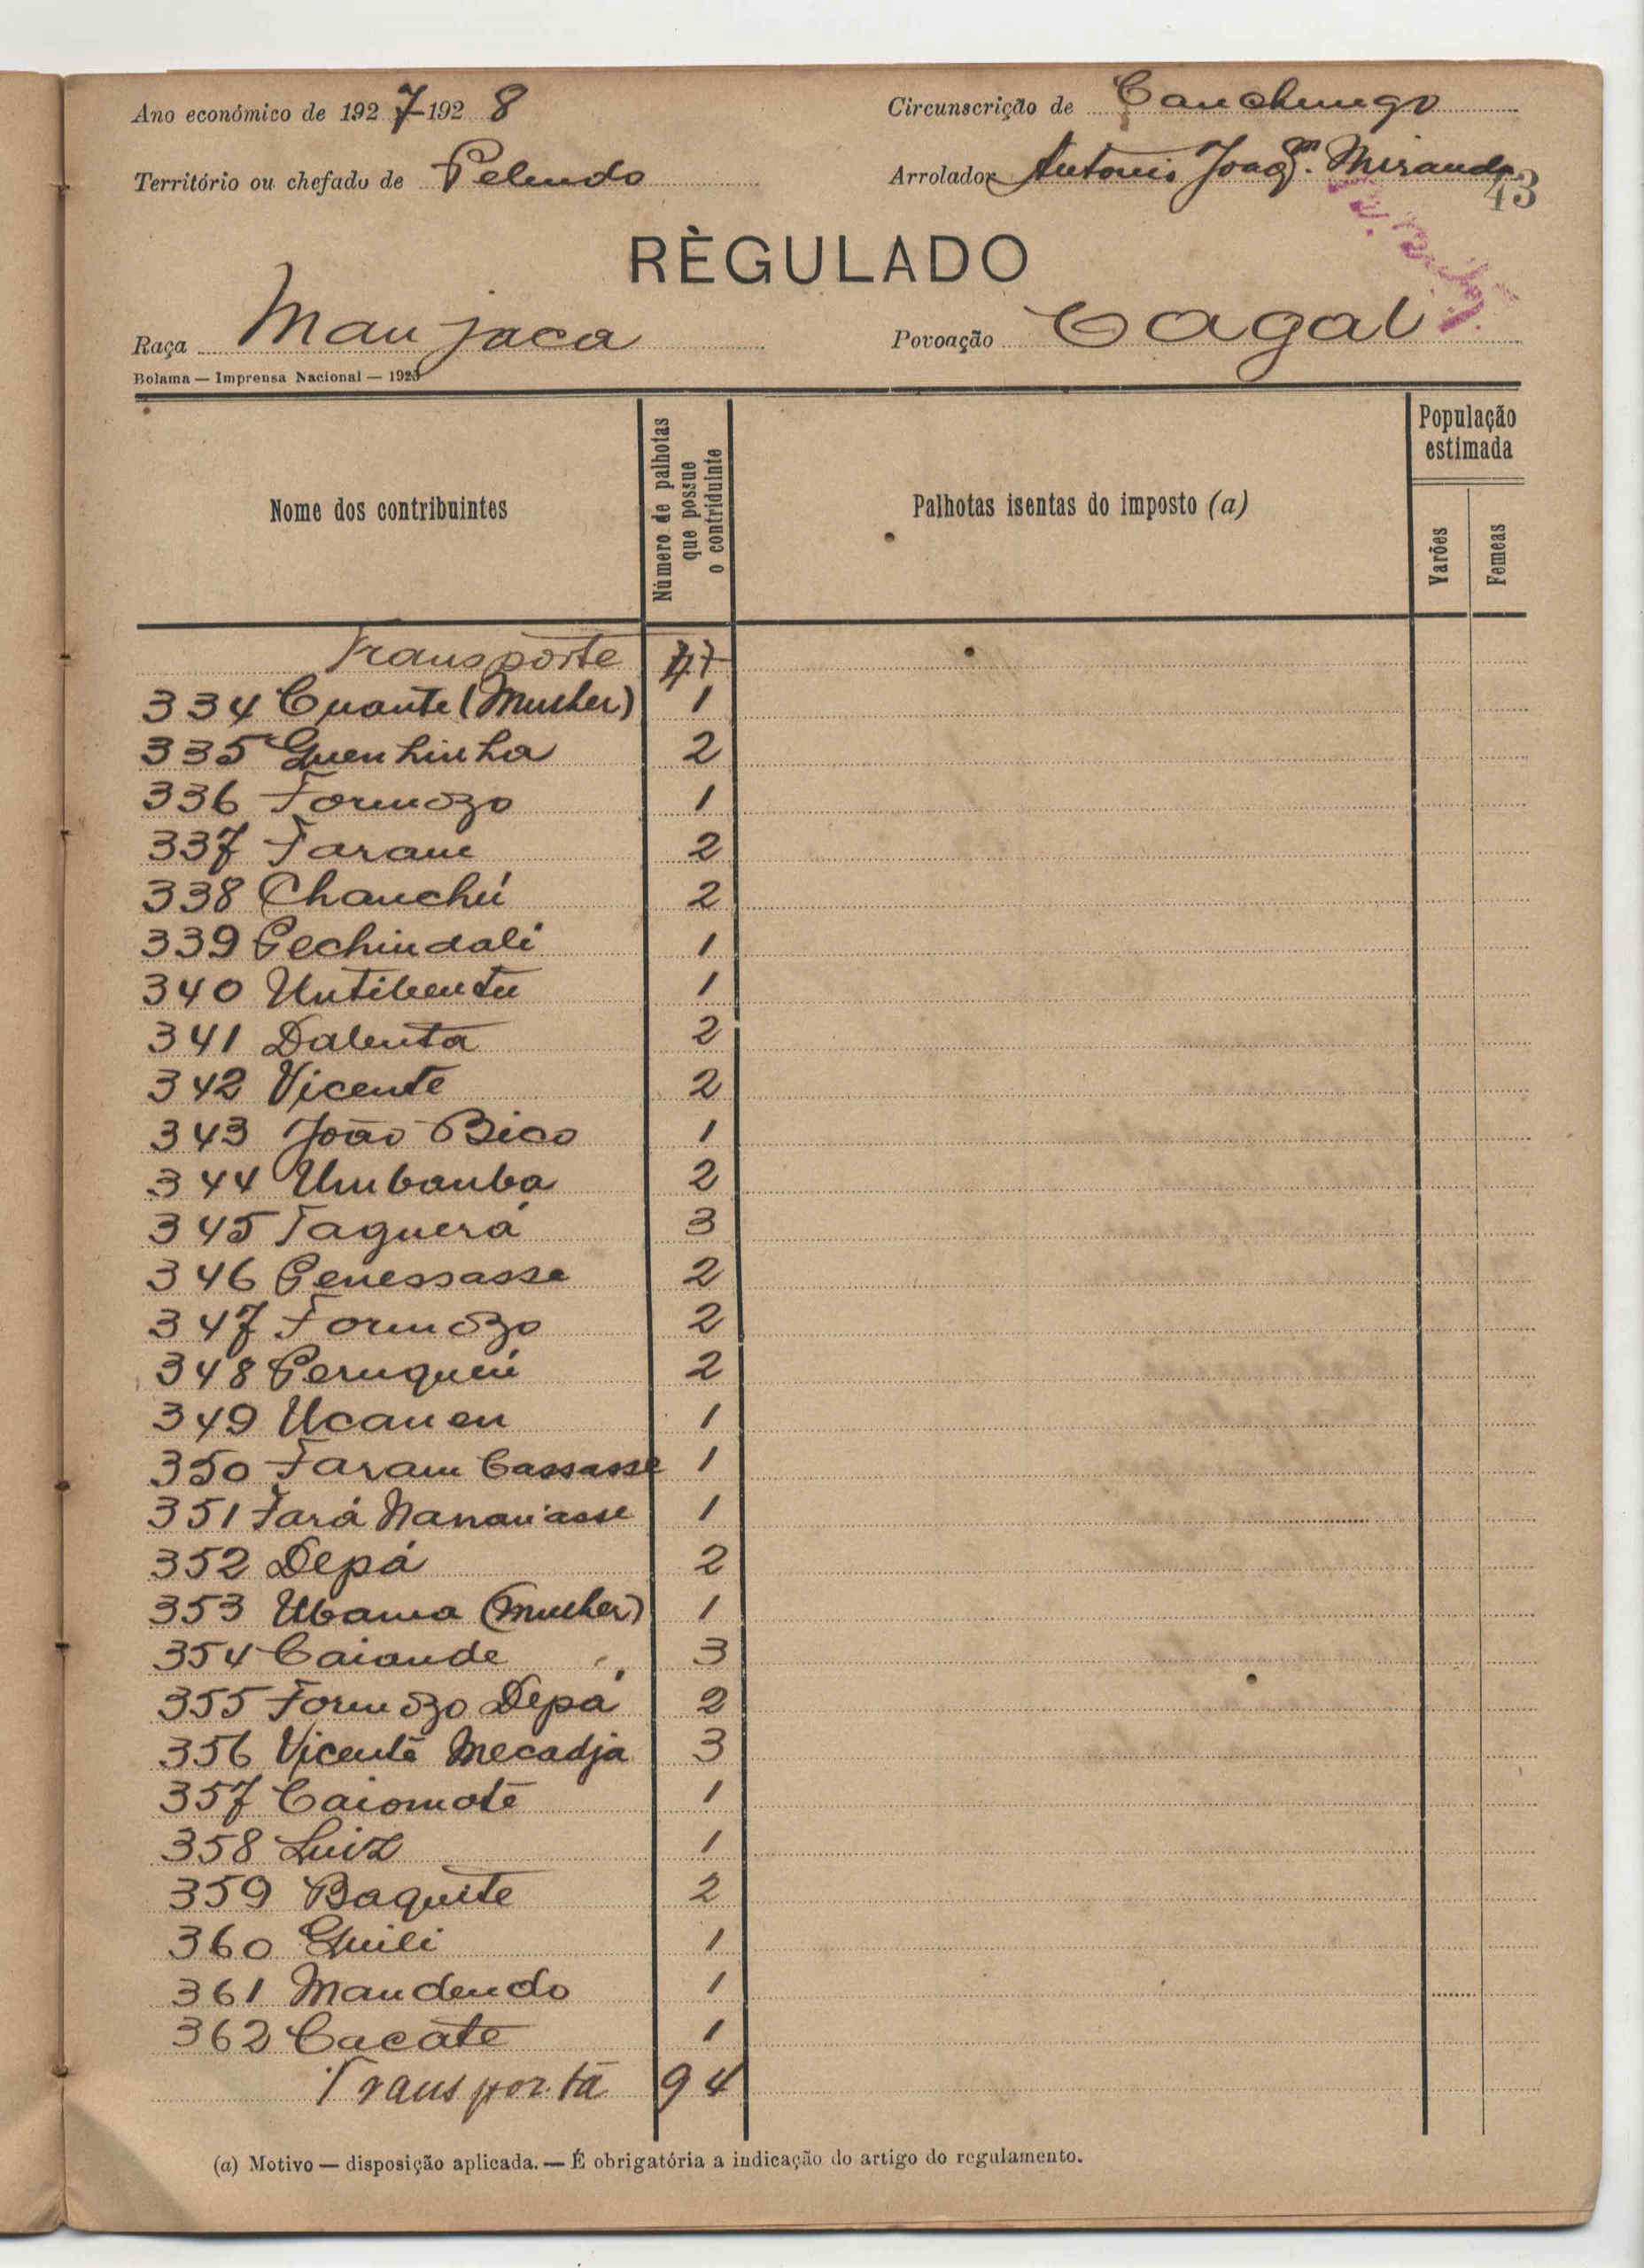 Ano económico de 1927-1928
Circunscrição de Canchungo
Território ou chefado de Pelundo
Arrolador Antonio Joaqm. Miranda
43
RÈGULADO
Raça Manjaca
Povoação Cagal
Bolama — Imprensa Nacional — 1923
Nome dos contribuintes
Número de palhotas
que possue
o contriduinte
Palhotas isentas do imposto (a)
População
estimada
Varões
Femeas
Transporte 47
334 Cuante (Mulher) 1
335 Quenhinha 2
336 Formozo 1
337 Faram 2
338 Chanchú 2
339 Pechindali 1
340 Untibentu 1
341 Dalenta 2
342 Vicente 2
343 João Bico 1
344 Umbamba 2
345 Taguerá 3
346 Penessasse 2
347 Formozo 2
348 2
349 Ucanen 1
350 Faram Cassasse 1
351 Fará 1
352 Depá 2
353 Ubama (Mulher) 1
354 Caiande 3
355 Formozo Depá 2
356 Vicente Mecadja 3
357 Caiomote 1
358 Luiz 1
359 Baquite 2
360 1
361 Mandendo 1
362 Cacate 1
Transporta 94
(a) Motivo — disposição aplicada. — É obrigatória a indicação do artigo do regulamento.